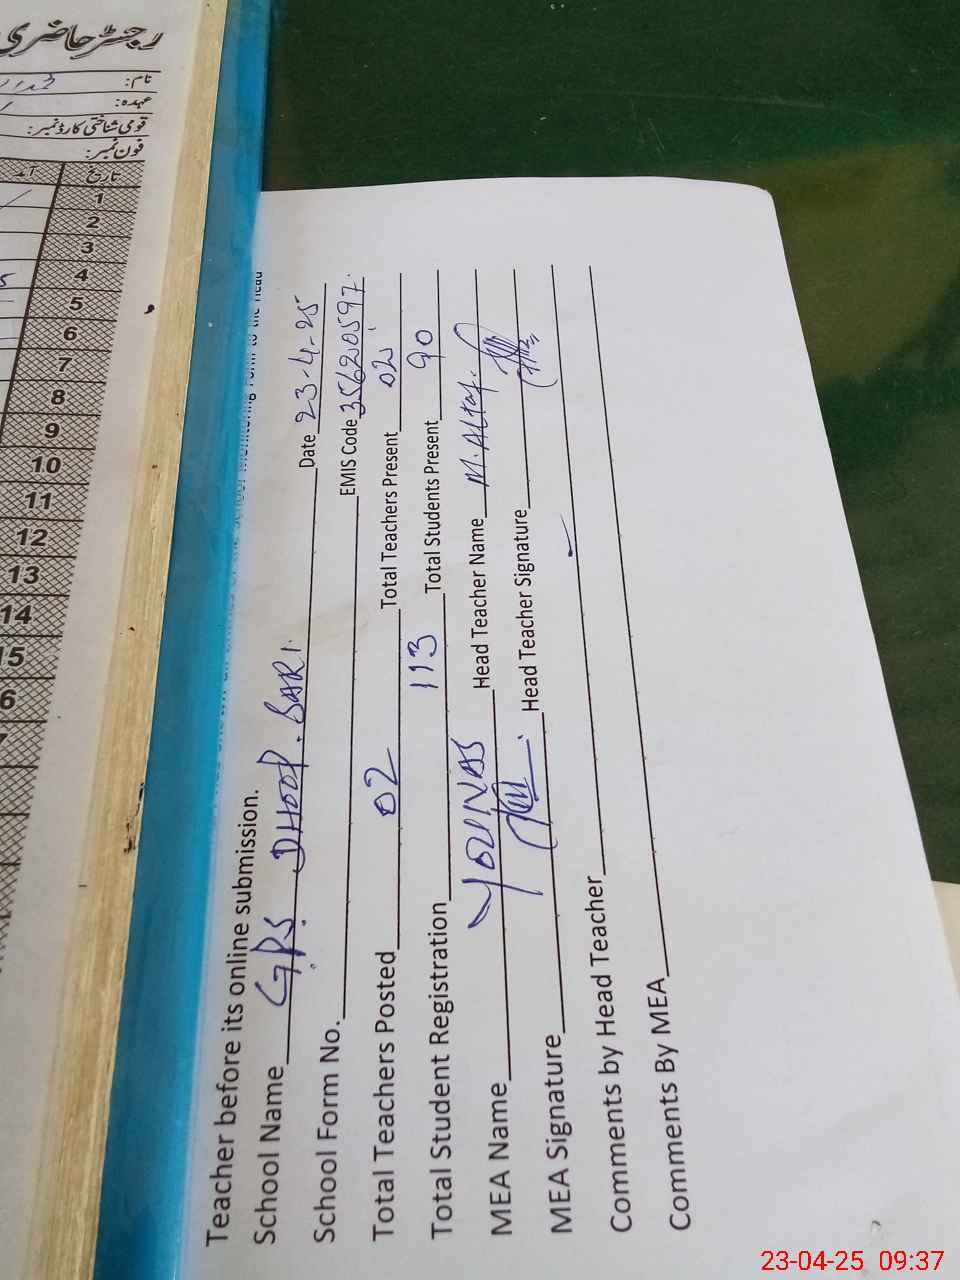 رجسٹر حاضری
نام:
عہدہ:
قومی شناختی کارڈ نمبر:
فون نمبر:
تاریخ
1
2
3
4
5
6
7
8
9
10
11
12
13
14
15
6
Teacher before its online submission.
School Name GPS DHOOP. SARI. Date 23-4-25
School Form No. EMIS Code 35620597.
Total Teachers Posted 02 Total Teachers Present 02
Total Student Registration 113 Total Students Present 90
MEA Name YOUNAS Head Teacher Name M. Altaf
MEA Signature Head Teacher Signature
Comments by Head Teacher
Comments By MEA
23-04-25 09:37